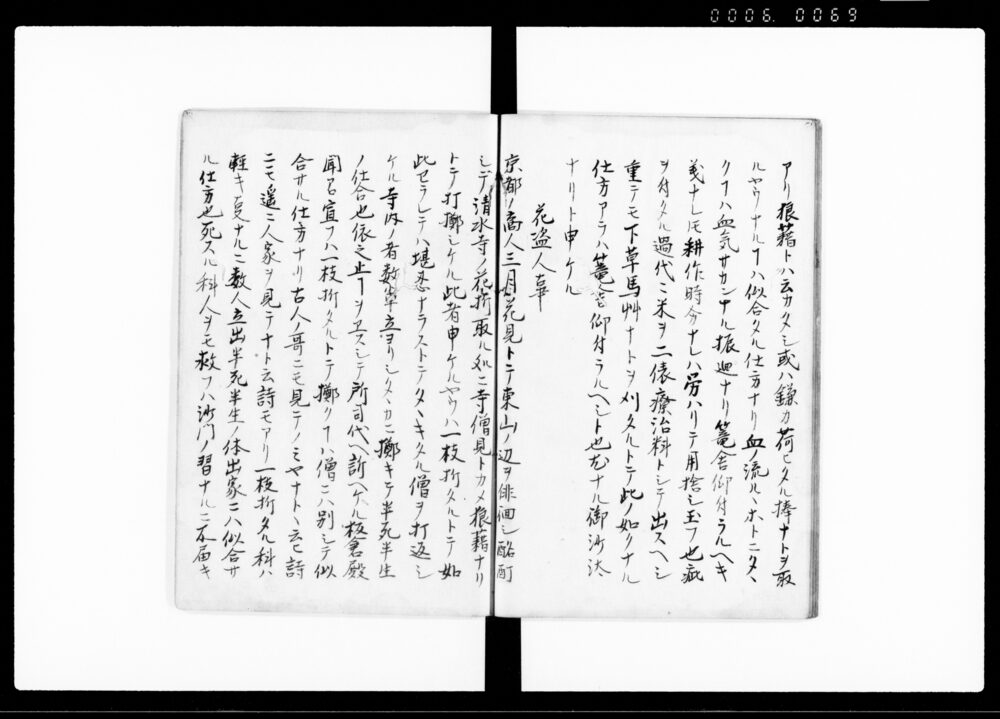 0006. 0069
アリ狼藉トハ云カタシ或ハ鎌カ荷ヒタル捧ナトヲ取
ルヤウナルヿハ似合タル仕方ナリ血ノ流ルヽホトニタヽ
クヿハ血気サカンナル振廻ナリ篭舎仰付ラルヘキ
義ナレ𪜈耕作時分ナレハ労ハリテ用捨シ玉フ也疵
ヲ付タル過代ニ米ヲ二俵療治料トシテ出スヘシ
重テモ下草馬艸ナトヲ刈タルトテ此ノ如クナル
仕方アラハ篭舎仰付ラルヘシト也尤ナル御沙汰
ナリト申ケル
花盗人事
京都ノ商人三月花見トテ東山ノ辺ヲ俳徊シ酩酊
シテ清水寺ノ花折取ル処ニ寺僧見トカメ狼藉ナリ
トテ打擲シケル此者申ケルヤウハ一枝折タルトテ如
此セラレテハ堪忍ナラストテタヽキタル僧ヲ打返シ
ケル寺内ノ者数輩立ヨリシタヽカニ擲キテ半死半生
ノ仕合也依之止ヿヲヱスシテ所司代ヘ訴ヘケル板倉殿
聞召宣フハ一枝折タルトテ擲クヿハ僧ニハ別シテ似
合サル仕方ナリ古人ノ哥ニモ見テノミヤナトヽ云ヒ詩
ニモ遥ニ人家ヲ見テナト云詩モアリ一枝折タル科ハ
軽キ夏ナルニ数人立出半死半生ノ体出家ニハ似合サ
ル仕方也死スル科人ヲモ救フハ沙門ノ習ナルニ不届キ